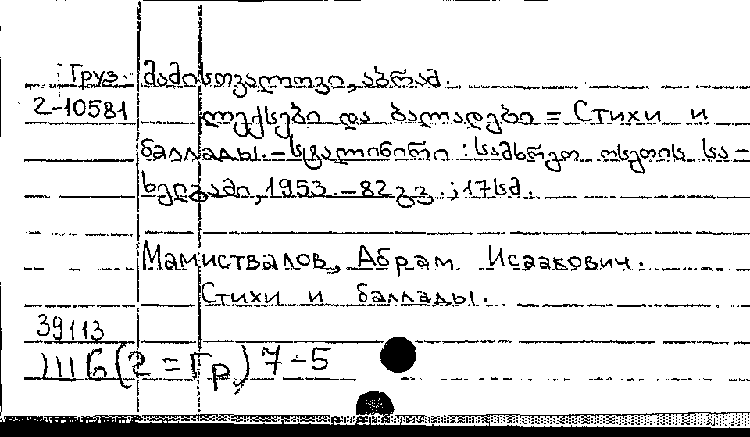 Груз. მამისთვალოვი, აბრამ.
2-10581 ლექსები და ბალადები = Стихи и
баллады. – სტალინირი : სამხრეთ ოსეთის სა-
ხელგამი, 1953. – 82 გვ. ; 17 სმ.
Мамиствалов, Абрам Исаакович.
Стихи и баллады.
39113
Ш6(2=Гр)7-5